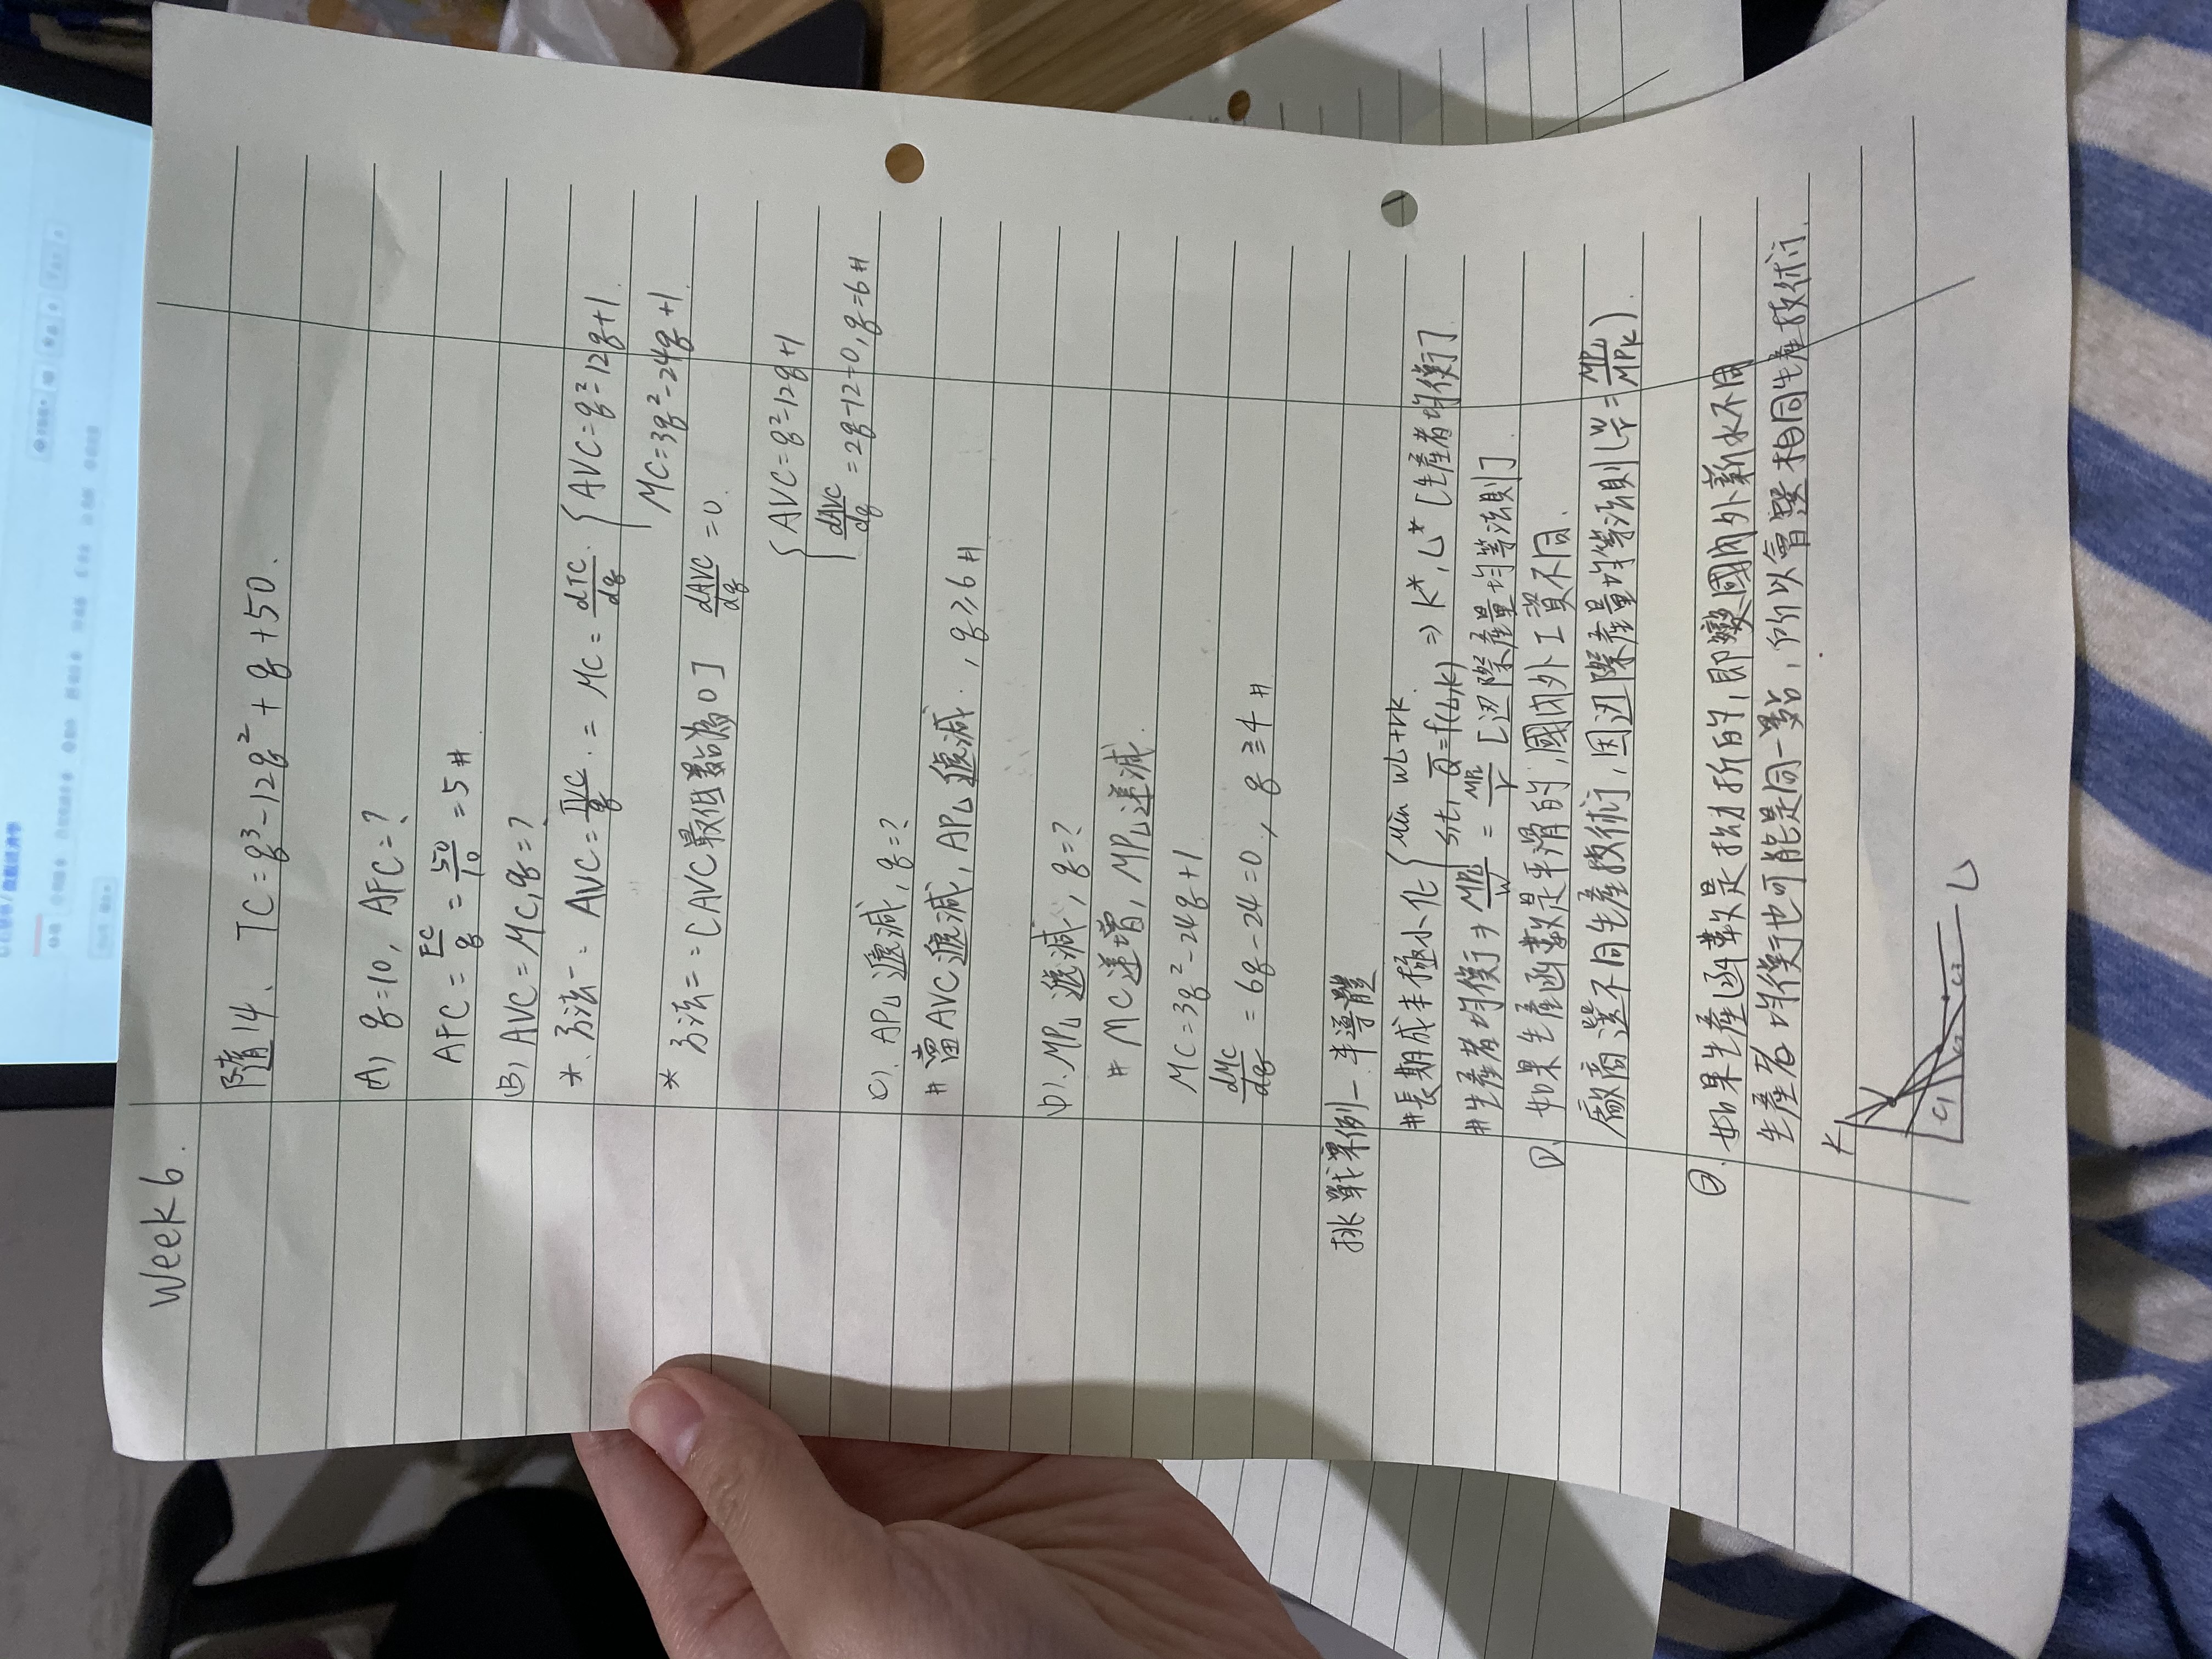 微觀經濟學
Week 6.
隨14. TC = q³ - 12q² + q + 50.
(A) q = 10, AFC = ?
AFC = FC/q = 50/10 = 5 #
(B) AVC = MC, q = ?
* 方法一: AVC = TVC/q = MC = dTC/dq { AVC = q² - 12q + 1.
MC = 3q² - 24q + 1.
* 方法二: [AVC最低點為0] dAVC/dq = 0.
{ AVC = q² - 12q + 1
dAVC/dq = 2q - 12 = 0, q = 6 #
(C). APL 遞減, q = ?
# 當AVC遞減, APL遞減, q ≥ 6 #
(D). MPL 遞減, q = ?
# MC遞增, MPL遞減.
MC = 3q² - 24q + 1
dMC/dq = 6q - 24 = 0, q ≥ 4 #
挑戰案例一 半導體
# 長期成本極小化 { Min wL + rK
s,t, Q̄ = f(L,K) ⇒ K*, L* [生產者均衡]
# 生產者均衡 ⇒ MPL/w = MPL/r [边際產量均等法則]
①. 如果生產函數是平滑的, 國內外工資不同.
廠商選不同生產技術, 因边際產量均等法則 (w/r = MPL/MPK).
②. 如果生產函數是拗折的, 即變國內外薪水不同
生產者均衡也可能是同一點, 所以會選相同生產技術.
K
C1 C2 C3 L